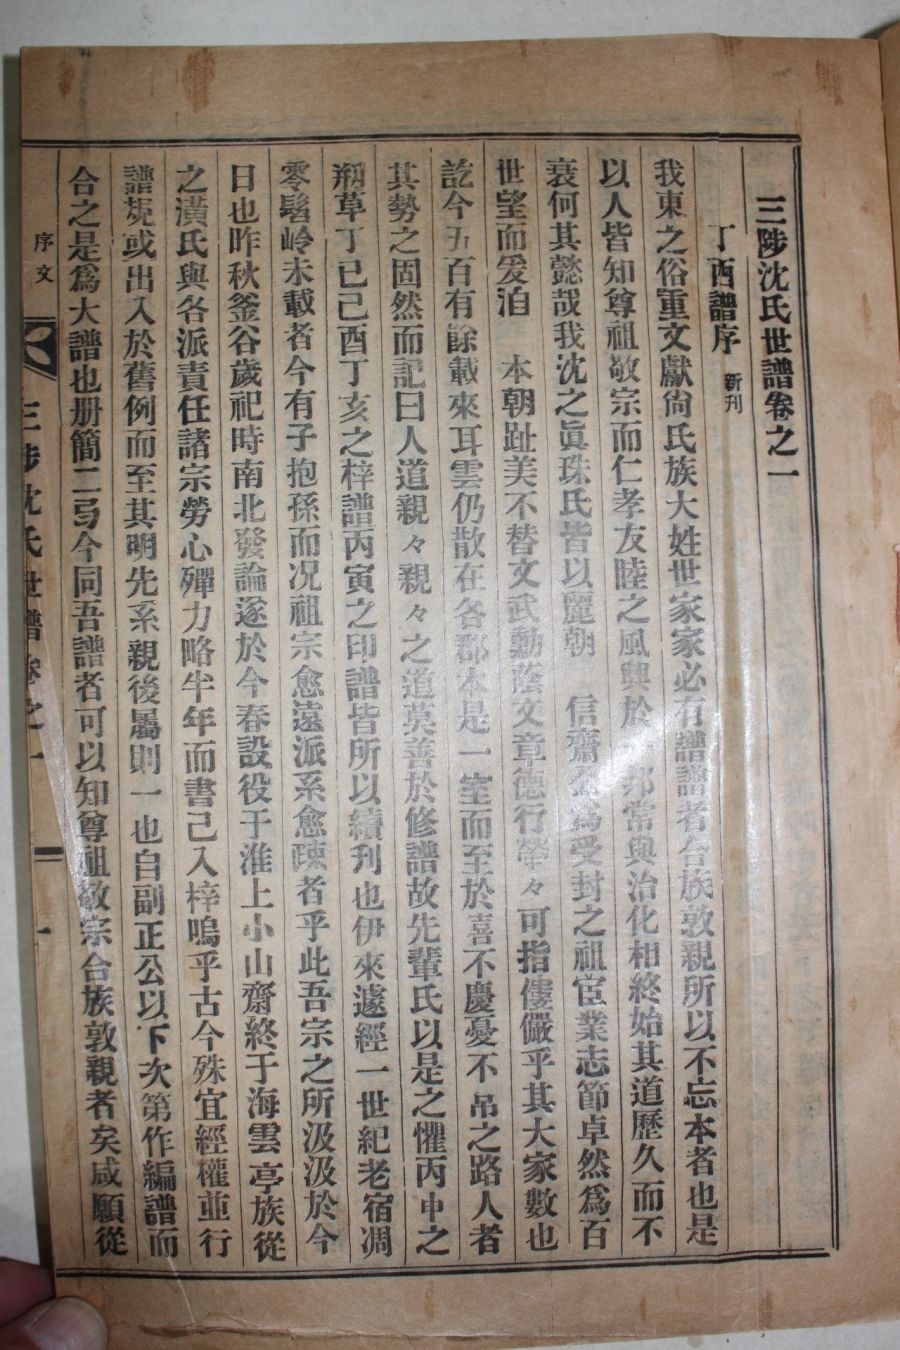 三陟沈氏世譜卷之一
丁酉譜序 新刊
我東之俗重文獻尙氏族大姓世家家必有譜譜者合族敦親所以不忘本者也是
以人皆知尊祖敬宗而仁孝友睦之風興於一邦常與治化相終始其道歷久而不
衰何其懿哉我沈之眞珠氏皆以麗朝 信齋公爲受封之祖宦業志節卓然爲百
世望而爰洎 本朝趾美不替文武勳蔭文章德行犖々可指僂儼乎其大家數也
訖今五百有餘載來耳雲仍散在各郡本是一室而至於喜不慶憂不吊之路人者
其勢之固然而記曰人道親々親々之道莫善於修譜故先輩氏以是之懼丙申之
刱草丁巳己酉丁亥之梓譜丙寅之印譜皆所以續刊也伊來遽經一世紀老宿凋
零髫齡未載者今有子抱孫而况祖宗愈遠派系愈疎者乎此吾宗之所汲汲於今
日也昨秋釜谷歲祀時南北發論遂於今春設役于淮上小山齋終于海雲亭族從
之潢氏與各派責任諸宗勞心殫力略半年而書己入梓嗚乎古今殊宜經權並行
譜䂓或出入於舊例而至其明先系親後屬則一也自副正公以下次第作編譜而
合之是爲大譜也册簡二弓今同吾譜者可以知尊祖敬宗合族敦親者矣咸願從
序文
三陟沈氏世譜卷之一
一